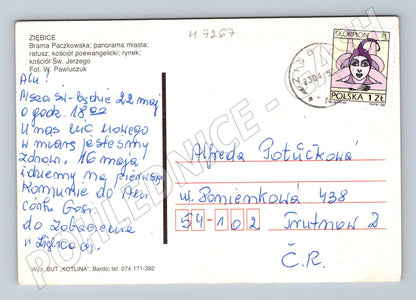 ZIĘBICE
Brama Paczkowska; panorama miasta;
ratusz; kościół poewangelicki; rynek;
kościół Św. Jerzego
Fot. W. Pawluczuk
H 7267
SKORPION
POLSKA 1 ZŁ
Alu!
Msza św. będzie 22 maj
o godz. 1800
U nas nic nowego
w miarę jesteśmy
zdrowi. 16 maja
idziemy na pierwszą
Komunię do
córki Gosi
do Zobaczenia
w Ziębicach
Alfreda Potučkowá
ul. Poměnkowá 438
54-102 Trutnow 2
Č.R.
Wyd. BUT „KOTLINA"; Bardo; tel. 074 171-392
POHLEDNICE